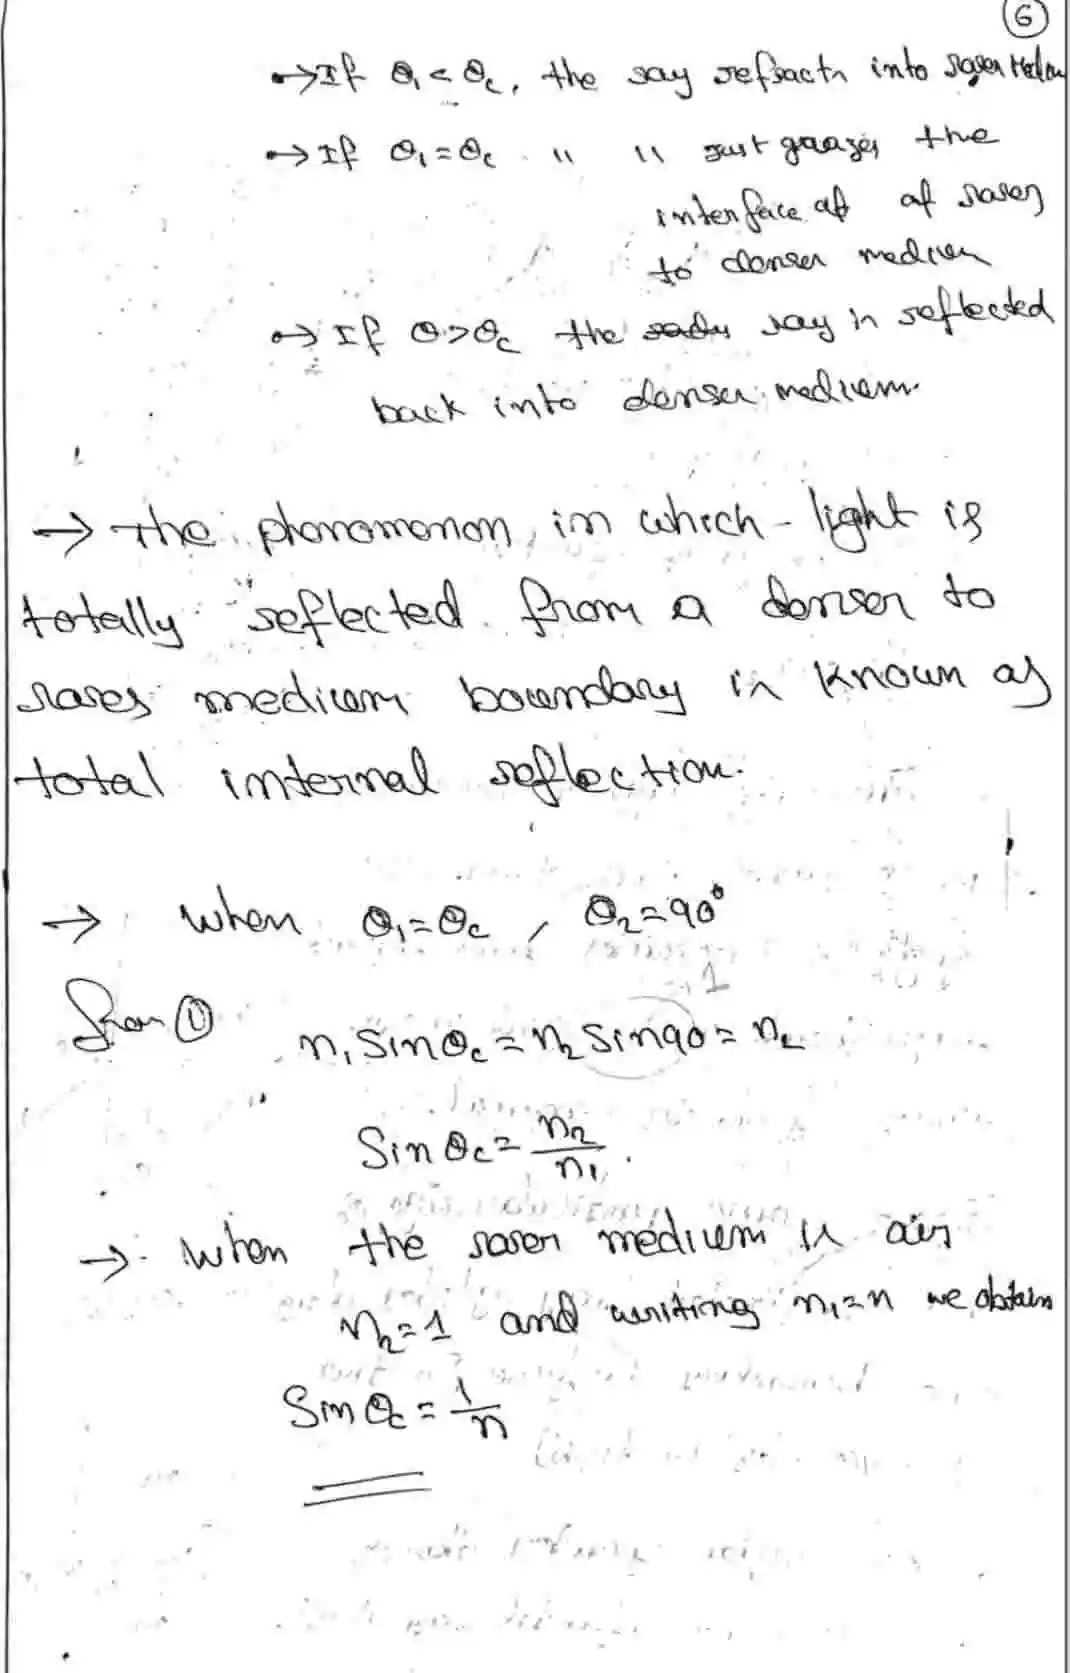 6
→ If θ₁ < θc, the ray refracts into rarer Medium
→ If θ₁ = θc " " just grazes the
interface of of rarer
to denser medium
→ If θ > θc the ray is reflected
back into denser medium.
→ The phonomonon in which light is
totally reflected from a denser to
rarer medium boundary is known as
total internal reflection.
→ when θ₁ = θc , θ₂ = 90°
1
from ① n₁ sin θc = n₂ sin 90 = n₂
Sin θc = n₂/n₁ .
→ when the rarer medium is air
n₂ = 1 and writing n₁ = n we obtain
Sin θc = 1/n